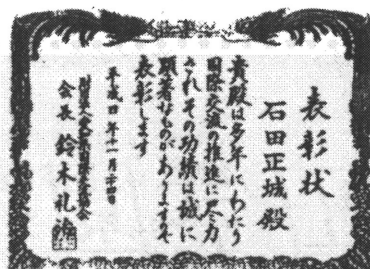 表彰状
石田正城殿
貴殿は多年にわたり
国際交流の推進に尽力
されその功績は誠に
顕著なものがありますので
表彰します
平成四年十一月二十四日
会長 鈴木礼治